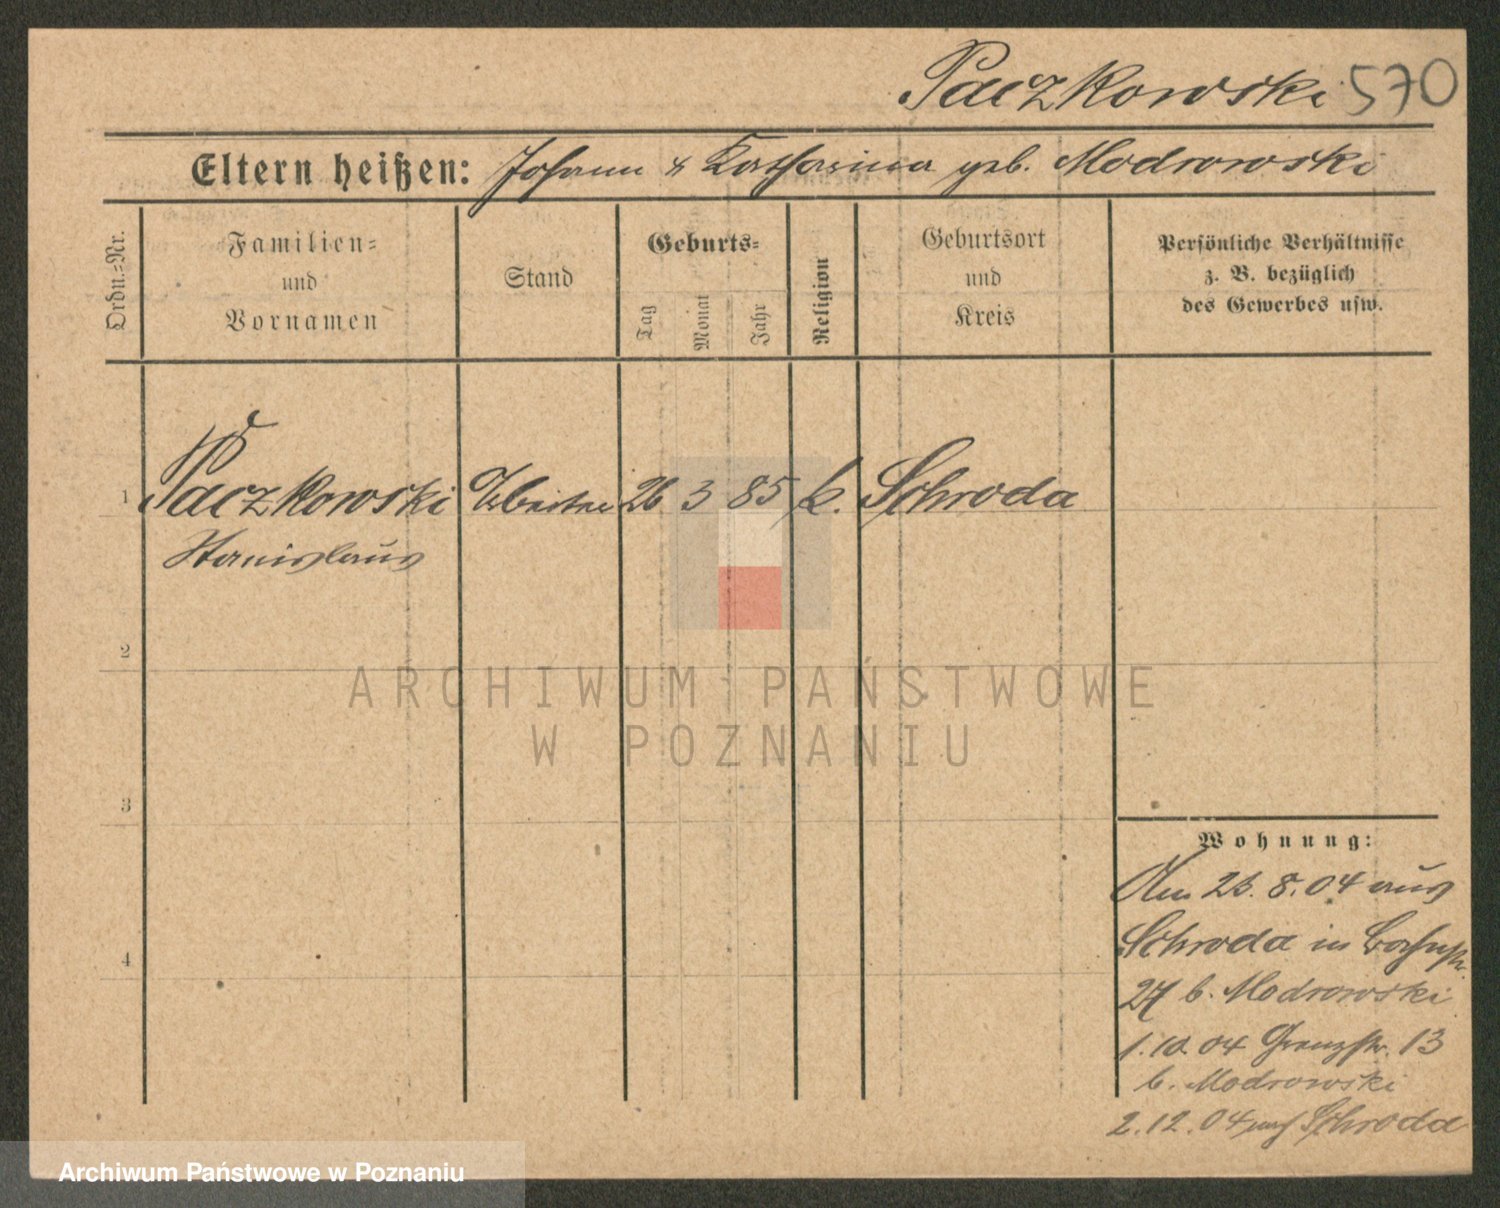 Paczkowski 570
Eltern heißen: Johann & Katharina geb. Modrowski
Ordn.=Nr.
Familien=
und
Vornamen
Stand
Geburts=
Tag
Monat
Jahr
Religion
Geburtsort
und
Kreis
Persönliche Verhältnisse
z. B. bezüglich
des Gewerbes usw.
1 Paczkowski Arbeiter 26 3 85 k. Schroda
Stanislaus
2
3
4
Wohnung:
Am 23. 8. 04 aus
Schroda in Bahnstr.
27 b. Modrowski
1. 10. 04 Grenzstr. 13
b. Modrowski
2. 12. 04 nach Schroda
ARCHIWUM PAŃSTWOWE
W POZNANIU
Archiwum Państwowe w Poznaniu